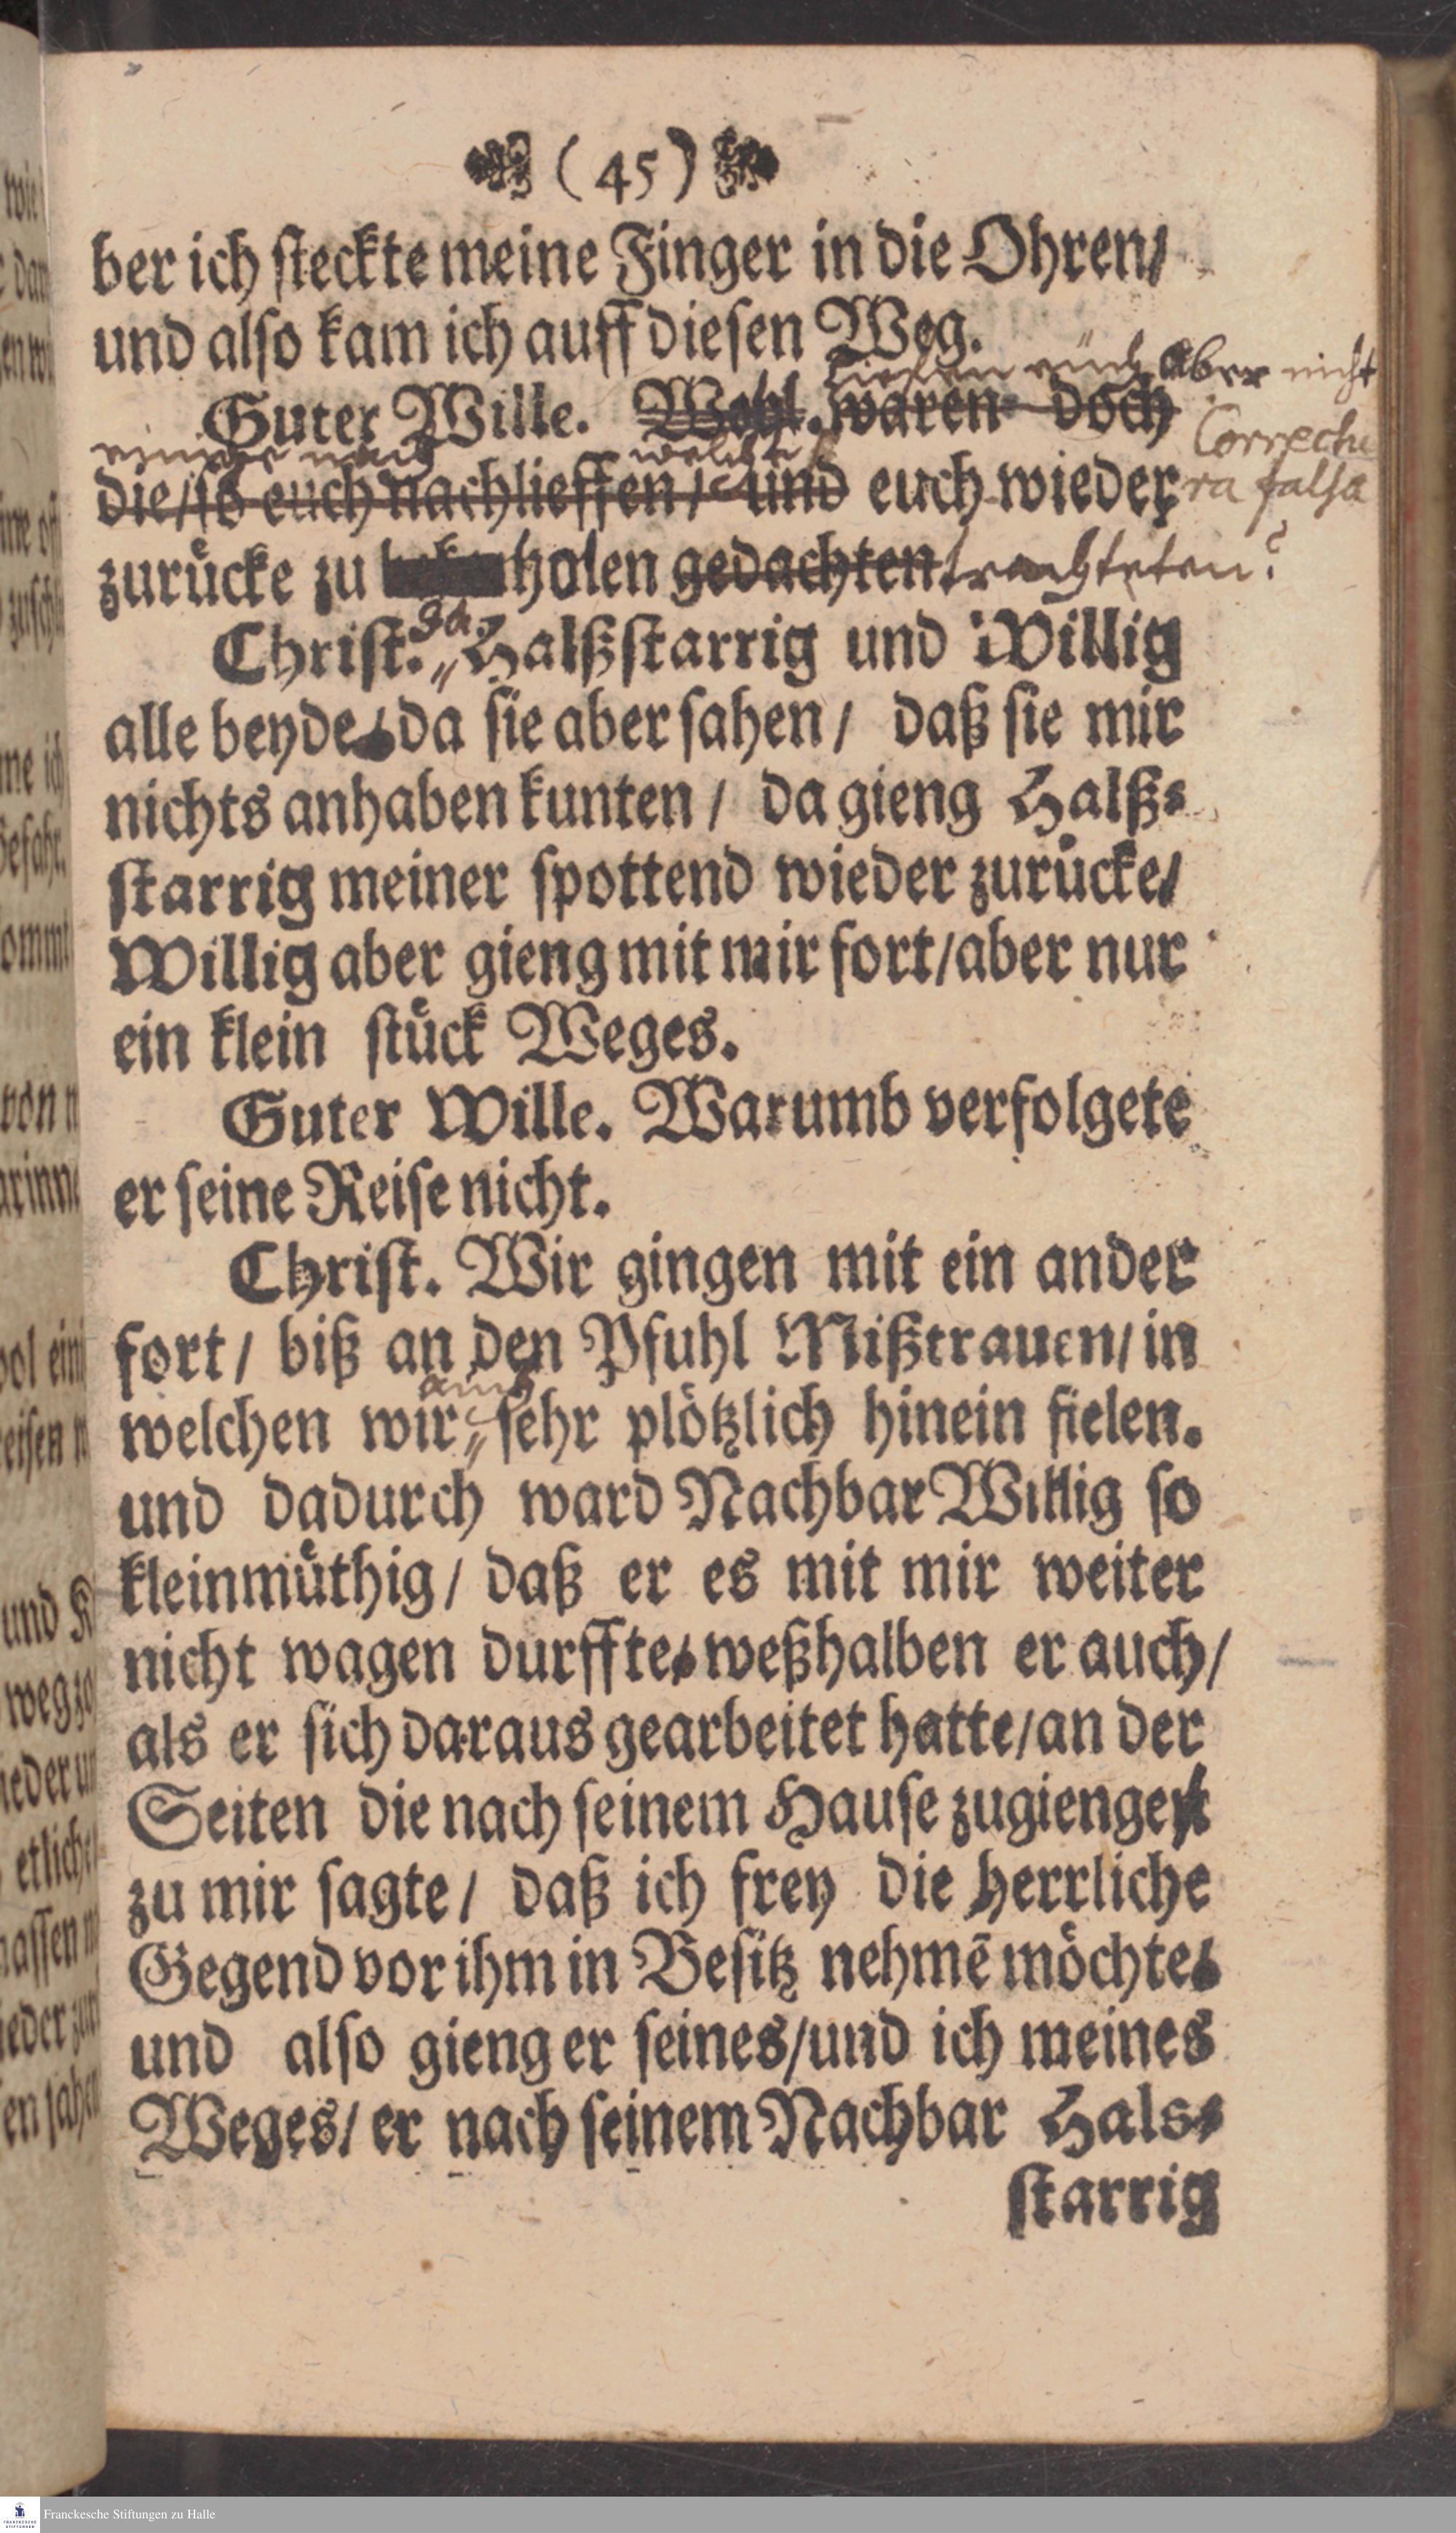 ( 45 )
ber ich ſteckte meine Finger in die Ohren/
und alſo kam ich auff dieſen Weg.
lieffen euch aber nicht
Guter Wille. Wohl. waren doch
Correctu
einige nach welche
die/ſo euch nachlieffen/ und euch wieder
ra falsa
zurücke zu holen gedachten trachteten?
Ja,
Chriſt. Halßſtarrig und Willig
alle beyde/da ſie aber ſahen/ daß ſie mir
nichts anhaben kunten/ da gieng Halß⸗
ſtarrig meiner ſpottend wieder zurücke/
Willig aber gieng mit mir fort/aber nur
ein klein ſtück Weges.
Guter Wille. Warumb verfolgete
er ſeine Reiſe nicht.
Chriſt. Wir gingen mit ein ander
fort/ biß an den Pfuhl Mißtrauen/in
auch
welchen wir ſehr plötzlich hinein fielen.
und dadurch ward Nachbar Willig ſo
kleinmüthig/ daß er es mit mir weiter
nicht wagen durffte/weßhalben er auch/
als er ſich daraus gearbeitet hatte/an der
Seiten die nach ſeinem Hauſe zugienge
zu mir ſagte/ daß ich frey die herrliche
Gegend vor ihm in Beſitz nehmē möchte/
und alſo gieng er ſeines/und ich meines
Weges/ er nach ſeinem Nachbar Hals⸗
ſtarrig
Franckesche Stiftungen zu Halle